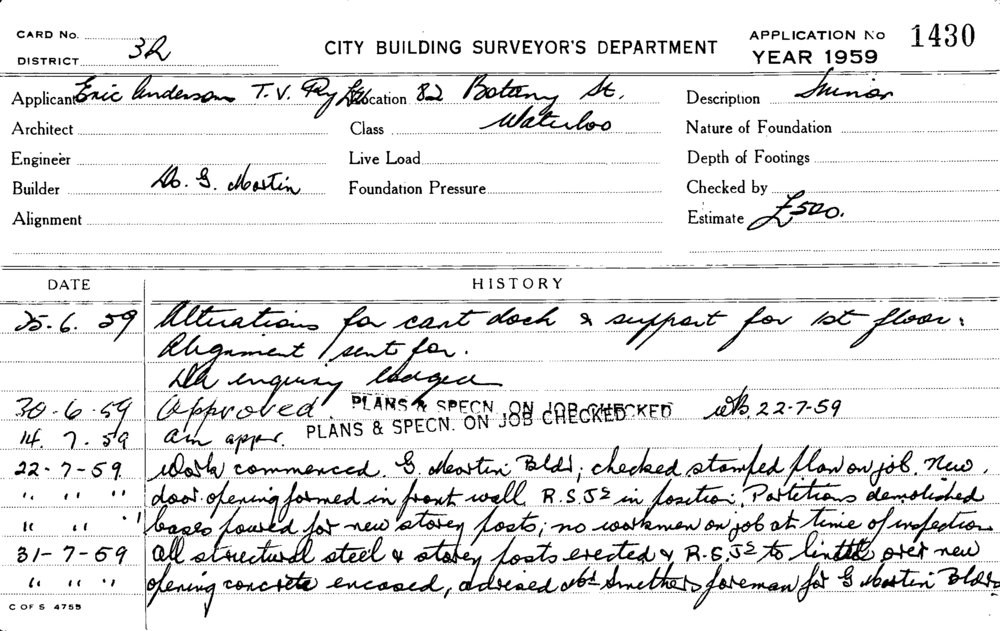 CARD No.
DISTRICT 3R
CITY BUILDING SURVEYOR'S DEPARTMENT
APPLICATION No 1430
YEAR 1959
Applicant Eric Anderson T.V. Pty Ltd Location 82 Botany St. Description Minor
Architect Class Waterloo Nature of Foundation
Engineer Live Load Depth of Footings
Builder G. Martin Foundation Pressure Checked by
Alignment Estimate £500.
DATE HISTORY
25-6-59 Alterations for cart dock & support for 1st floor.
Alignment sent for.
enquiry lodged
30-6-59 Approved. PLANS & SPECN. ON JOB CHECKED 22-7-59
14.7-59 appr. PLANS & SPECN. ON JOB CHECKED
22-7-59 Work commenced. G. Martin Bldr; checked stamped plan on job. New
" " " door opening formed in front wall R.S.Js in position. Partitions demolished
" " " bases poured for new storey posts; no workmen on job at time of inspection
31-7-59 All structural steel & storey posts erected & R.S.Js to lintel over new
" " " opening concrete encased, advised Mr Smethers foreman for G Martin Bldr
C OF S 4755